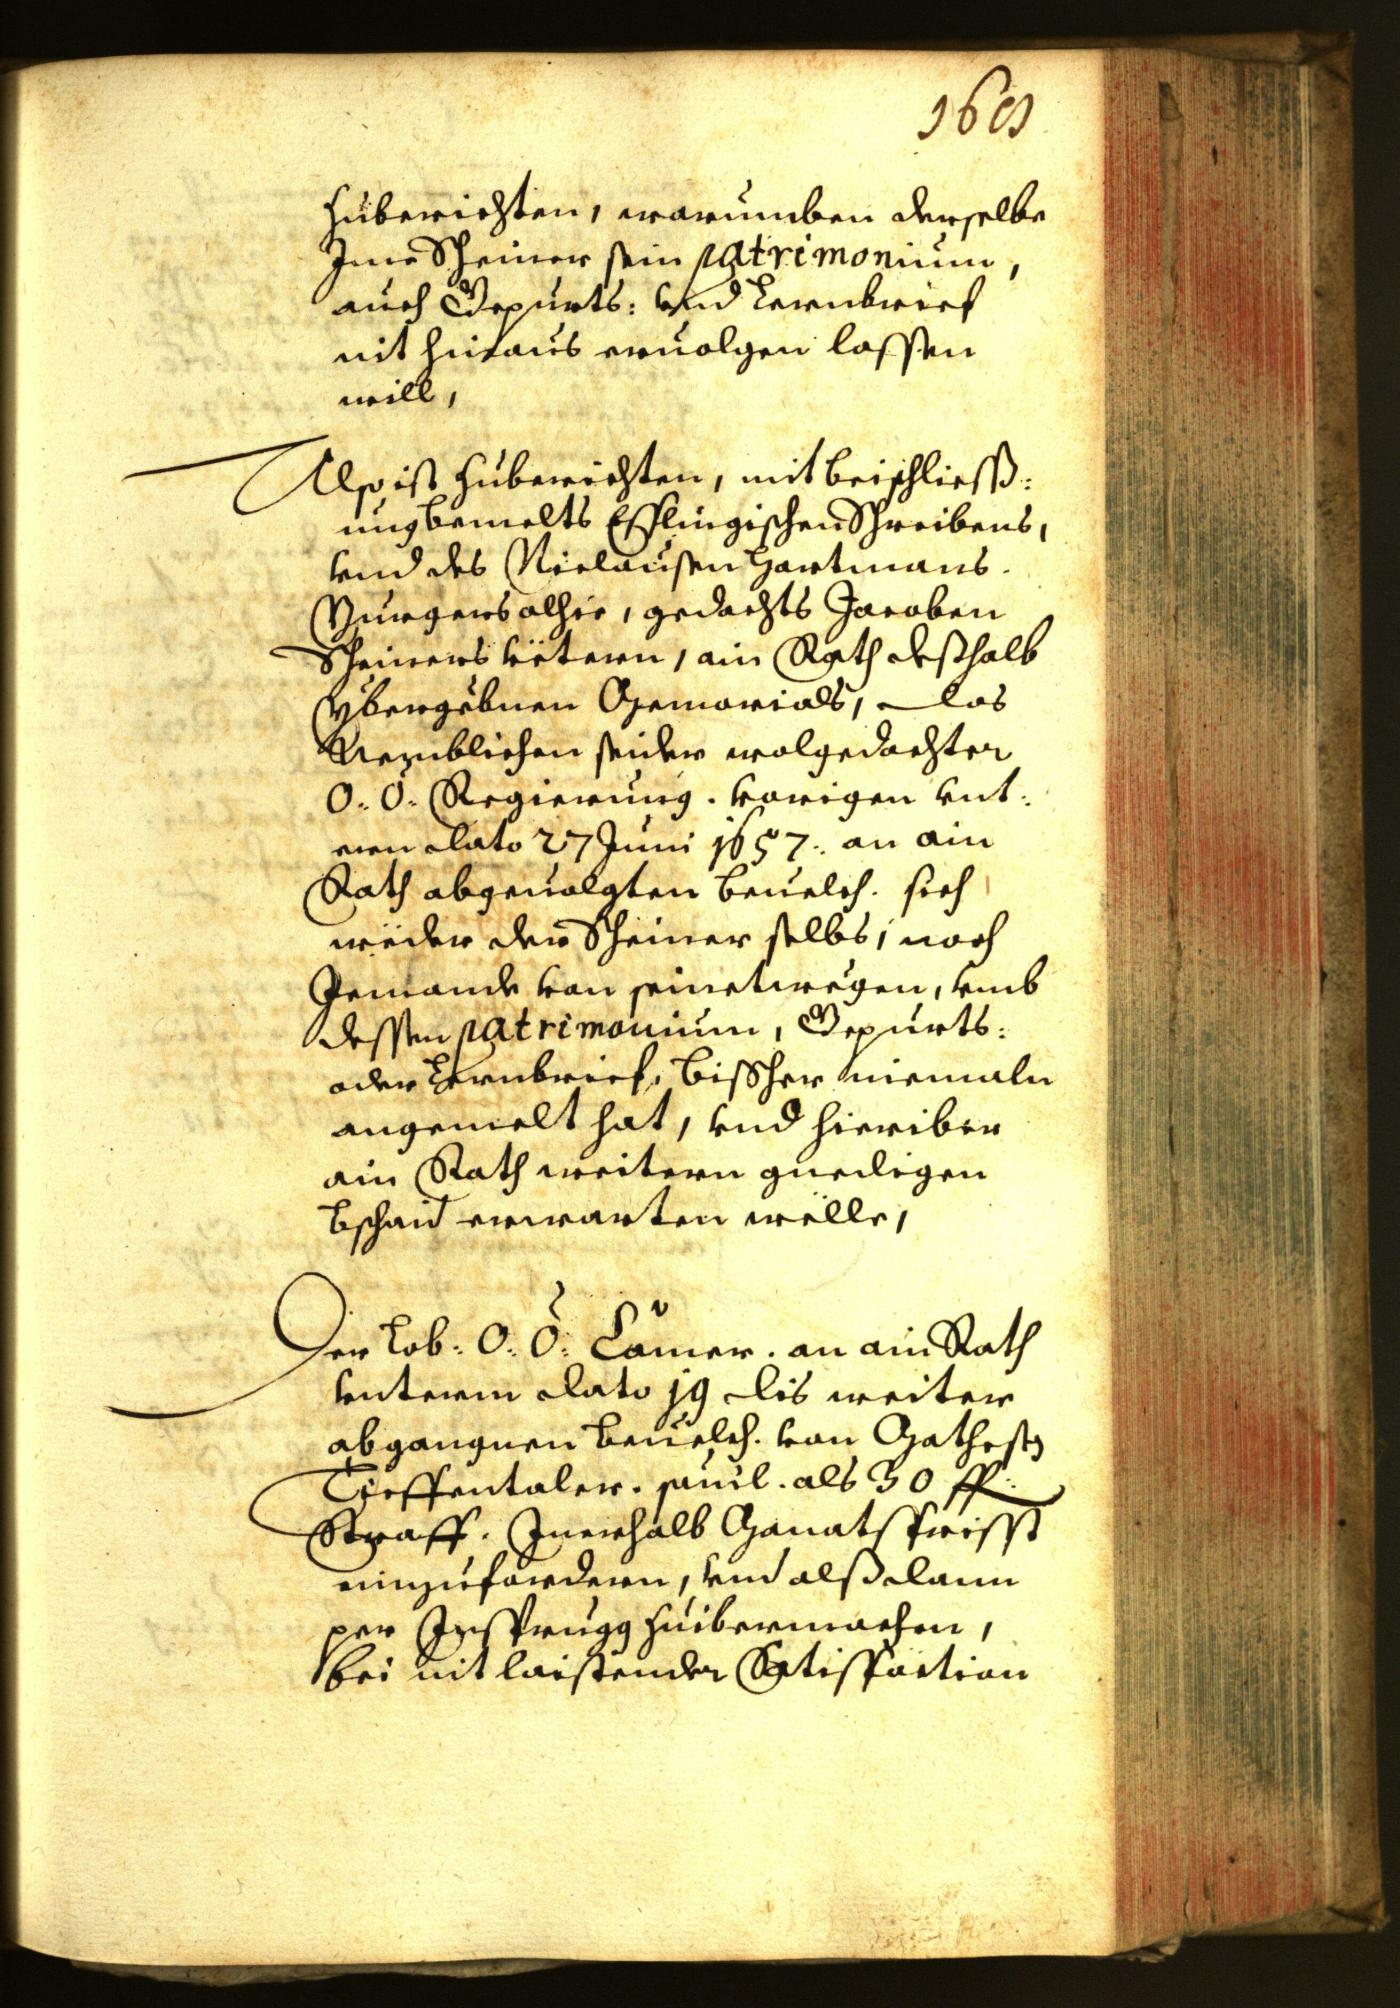 168
zuberichten, warumben derselbe
Ime Scheiner sein patrimonium,
auch Gepurts: vnd Lernbrief
nit hinaus eruolgen lassen
will,
Also ist zuberichten, mit beischliess:
ung bemelts Esslingischen Schreibens,
vnd des Niclausen Hartmans.
Burgers alhie, gedachts Jacoben
Scheiners vëtern, ain Rath desshalb
ybergebnen Memorials, das
Nemblichen seider wolgedachter
O: Ö: Regierung. vorigen vnt:
erm dato 27 Juni 1657. an ain
Rath abgeuolgten beuelch. sich
weder der Scheiner selbs, noch
Jemandt von seinetwegen, vmb
dessen patrimonium, Gepurts:
oder Lernbrief, bissher niemaln
angemelt hat, vnd hieriber
ain Rath weitern gnedigen
bschaid erwarten wëlle,
Der Lob: O: Ö: Camer. an ain Rath
vnterm dato 19 dis weiter
abgangnen beuelch. von Mathesn
Tieffentaler. pauil. als 30 fl:
Straff. Inerhalb Monatsfrisst
einzufordern, vnd alssdann
per Insprugg zuibermachen,
bei nit laistender Satisfaction